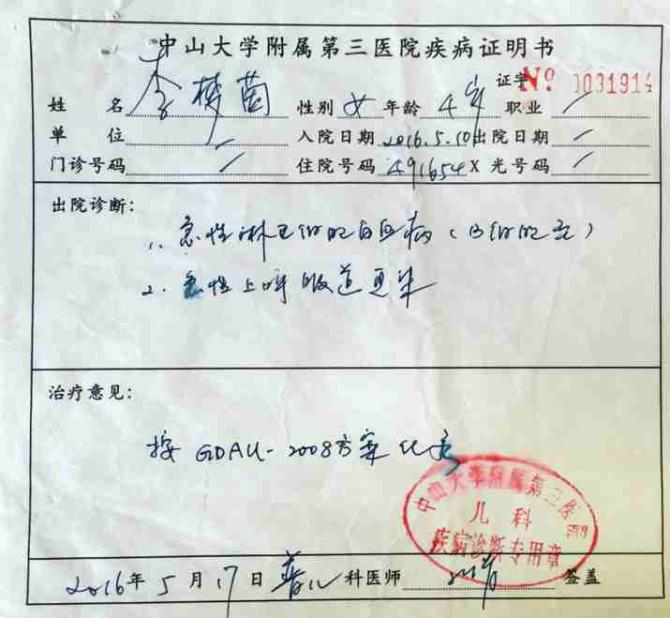 中山大学附属第三医院疾病证明书
证字 No 0031914
姓名 李梦茵 性别 女 年龄 4岁 职业 /
单位 / 入院日期 2016.5.10 出院日期 /
门诊号码 / 住院号码 491654 X光号码 /
出院诊断:
1. 急性淋巴细胞白血病(B细胞型)
2. 急性上呼吸道感染
治疗意见:
按 GDALL-2008方案化疗
中山大学附属第三医院
儿科
疾病诊断专用章
2016年5月17日 普儿科医师 签盖